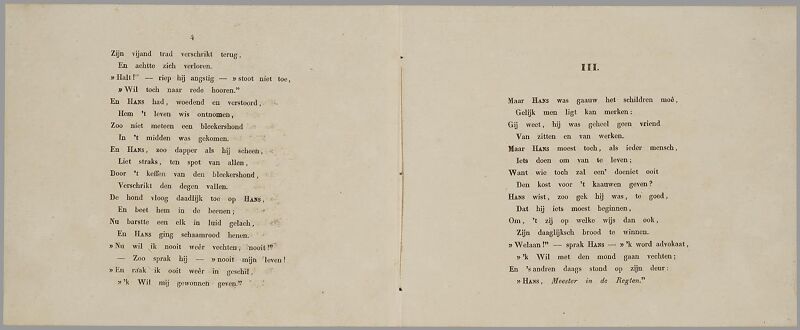 4
Zijn vijand trad verschrikt terug,
En achtte zich verloren.
» Halt!" — riep hij angstig — » stoot niet toe,
» Wil toch naar rede hooren."
En HANS had, woedend en verstoord,
Hem 't leven wis ontnomen,
Zoo niet meteen een bleekershond
In 't midden was gekomen.
En HANS, zoo dapper als hij scheen,
Liet straks, ten spot van allen,
Door 't keffen van den bleekershond,
Verschrikt den degen vallen.
De hond vloog daadlijk toe op HANS,
En beet hem in de beenen;
Nu barstte een elk in luid gelach,
En HANS ging schaamrood henen.
» Nu wil ik nooit weêr vechten, nooit!"
— Zoo sprak hij — » nooit mijn leven!
» En raak ik ooit weêr in geschil,
» 'k Wil mij gewonnen geven."
III.
Maar HANS was gaauw het schildren moê,
Gelijk men ligt kan merken;
Gij weet, hij was geheel geen vriend
Van zitten en van werken.
Maar HANS moest toch, als ieder mensch,
Iets doen om van te leven;
Want wie toch zal een' doeniet ooit
Den kost voor 't kaauwen geven?
HANS wist, zoo gek hij was, te goed,
Dat hij iets moest beginnen,
Om, 't zij op welke wijs dan ook,
Zijn daaglijksch brood te winnen.
» Welaan!" — sprak HANS — » 'k word advokaat,
» 'k Wil met den mond gaan vechten;
En 's andren daags stond op zijn deur:
» HANS, Meester in de Regten."